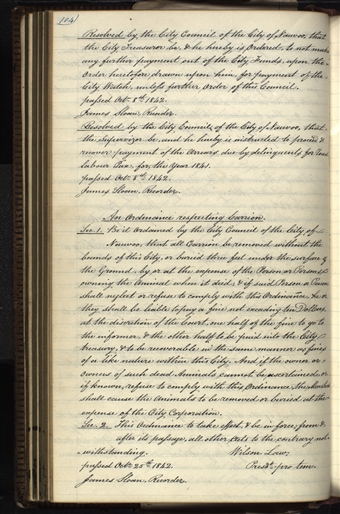 104
Resolved by the City Council of the City of Nauvoo, that
the City Treasurer be & he hereby is Ordered, to not make
any further payment out of the City Funds, upon the
Order heretofore drawn upon him, for payment of the
City Watch, unless further order of this Council.
passed Oct. 8th 1842.
James Sloan, Recorder.
Resolved by the City Council of the City of Nauvoo, that
the Supervisor be, and he hereby is instructed to proceed &
recover payment of the Arrears due by delinquents for Road
labour Tax, for the Year 1841.
passed Oct. 8th 1842.
James Sloan, Recorder.
An Ordinance respecting Carrion.
Sec. 1. Be it Ordained by the City Council of the City of
Nauvoo, that all Carrion be removed without the
bounds of this City, or buried three feet under the surface of
the Ground, by or at the expense of the Person or Persons
owning the Animal when it died, & if said Person or Persons
shall neglect or refuse to comply with this Ordinance, he or
they shall be liable to pay a fine not exceeding ten Dollars,
at the discretion of the Court, one half of the fine to go to
the informer, & the other half to be paid into the City
Treasury, & to be recoverable in the same manner as fines
of a like nature within this City. And if the owner or
owners of such dead Animals cannot be ascertained, or
if known, refuse to comply with this Ordinance, the Marshal
shall cause the Animals to be removed or buried at the
expense of the City Corporation.
Sec. 2. This Ordinance to take effect, & be in force, from &
after its passage, all other Acts to the contrary not-
-withstanding. Wilson Law,
passed Oct. 25th 1842. Presdt. pro tem.
James Sloan, Recorder.